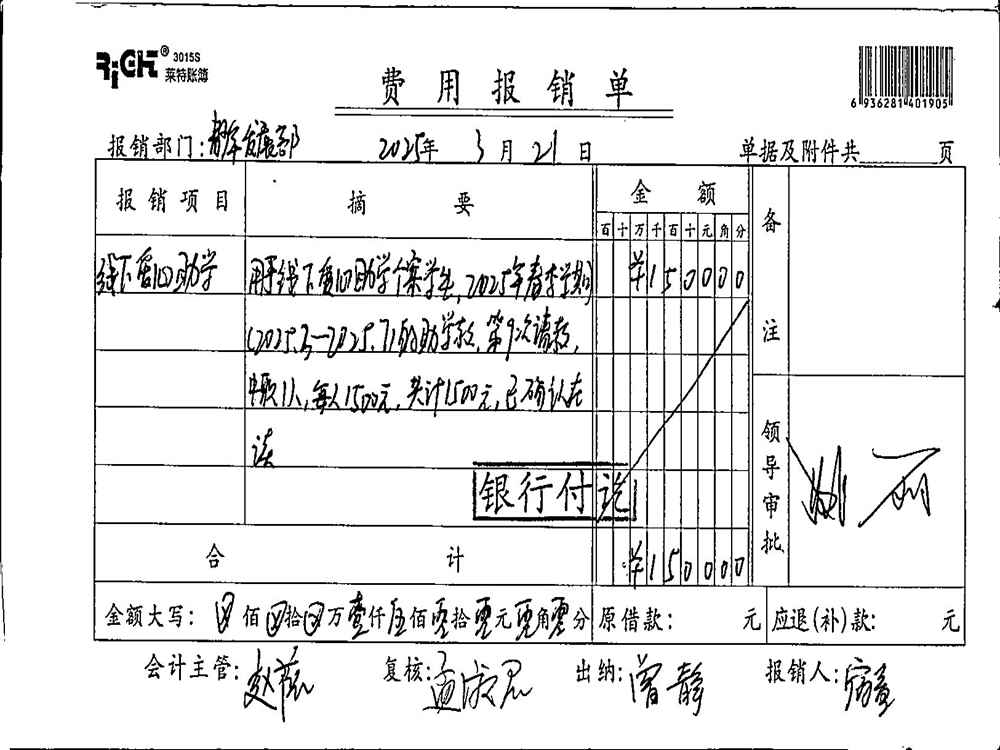 RiCH® 3015S
莱特账簿
费用报销单
6 936281 401905
报销部门: 发展部 2025年 3月21日 单据及附件共 页
报销项目 摘要 金额 备注
百十万千百十元角分
线下雪山助学 用于线下雪山助学个案学生,2025年春季学期
¥150000
(2025.3-2025.7)的助学款,第9次请款,
申领1人,每人1500元,共计1500元,已确认在
读
银行付讫
领导审批
合计 ¥150000
金额大写: 佰 拾 万壹仟伍佰零拾零元零角零分 原借款: 元 应退(补)款: 元
会计主管: 赵 复核: 孟淑君 出纳: 曾静 报销人: